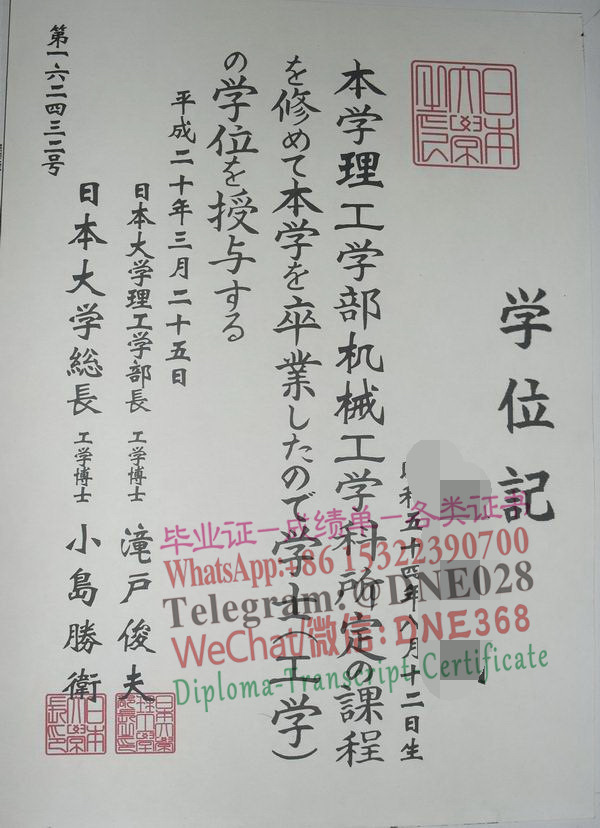 学位記
和五十四年八月十二日生
本学理工学部机械工学科所定の課程
を修めて本学を卒業したので学士(工学)
の学位を授与する
平成二十年三月二十五日
日本大学理工学部長 工学博士 滝戸俊夫
日本大学総長 工学博士 小島勝衛
第一六二四三二号
毕业证一成绩单一各类证书
WhatsApp:+86 15322390700
Telegram:@DNE028
WeChat/微信:DNE368
Diploma-Transcript-Certificate